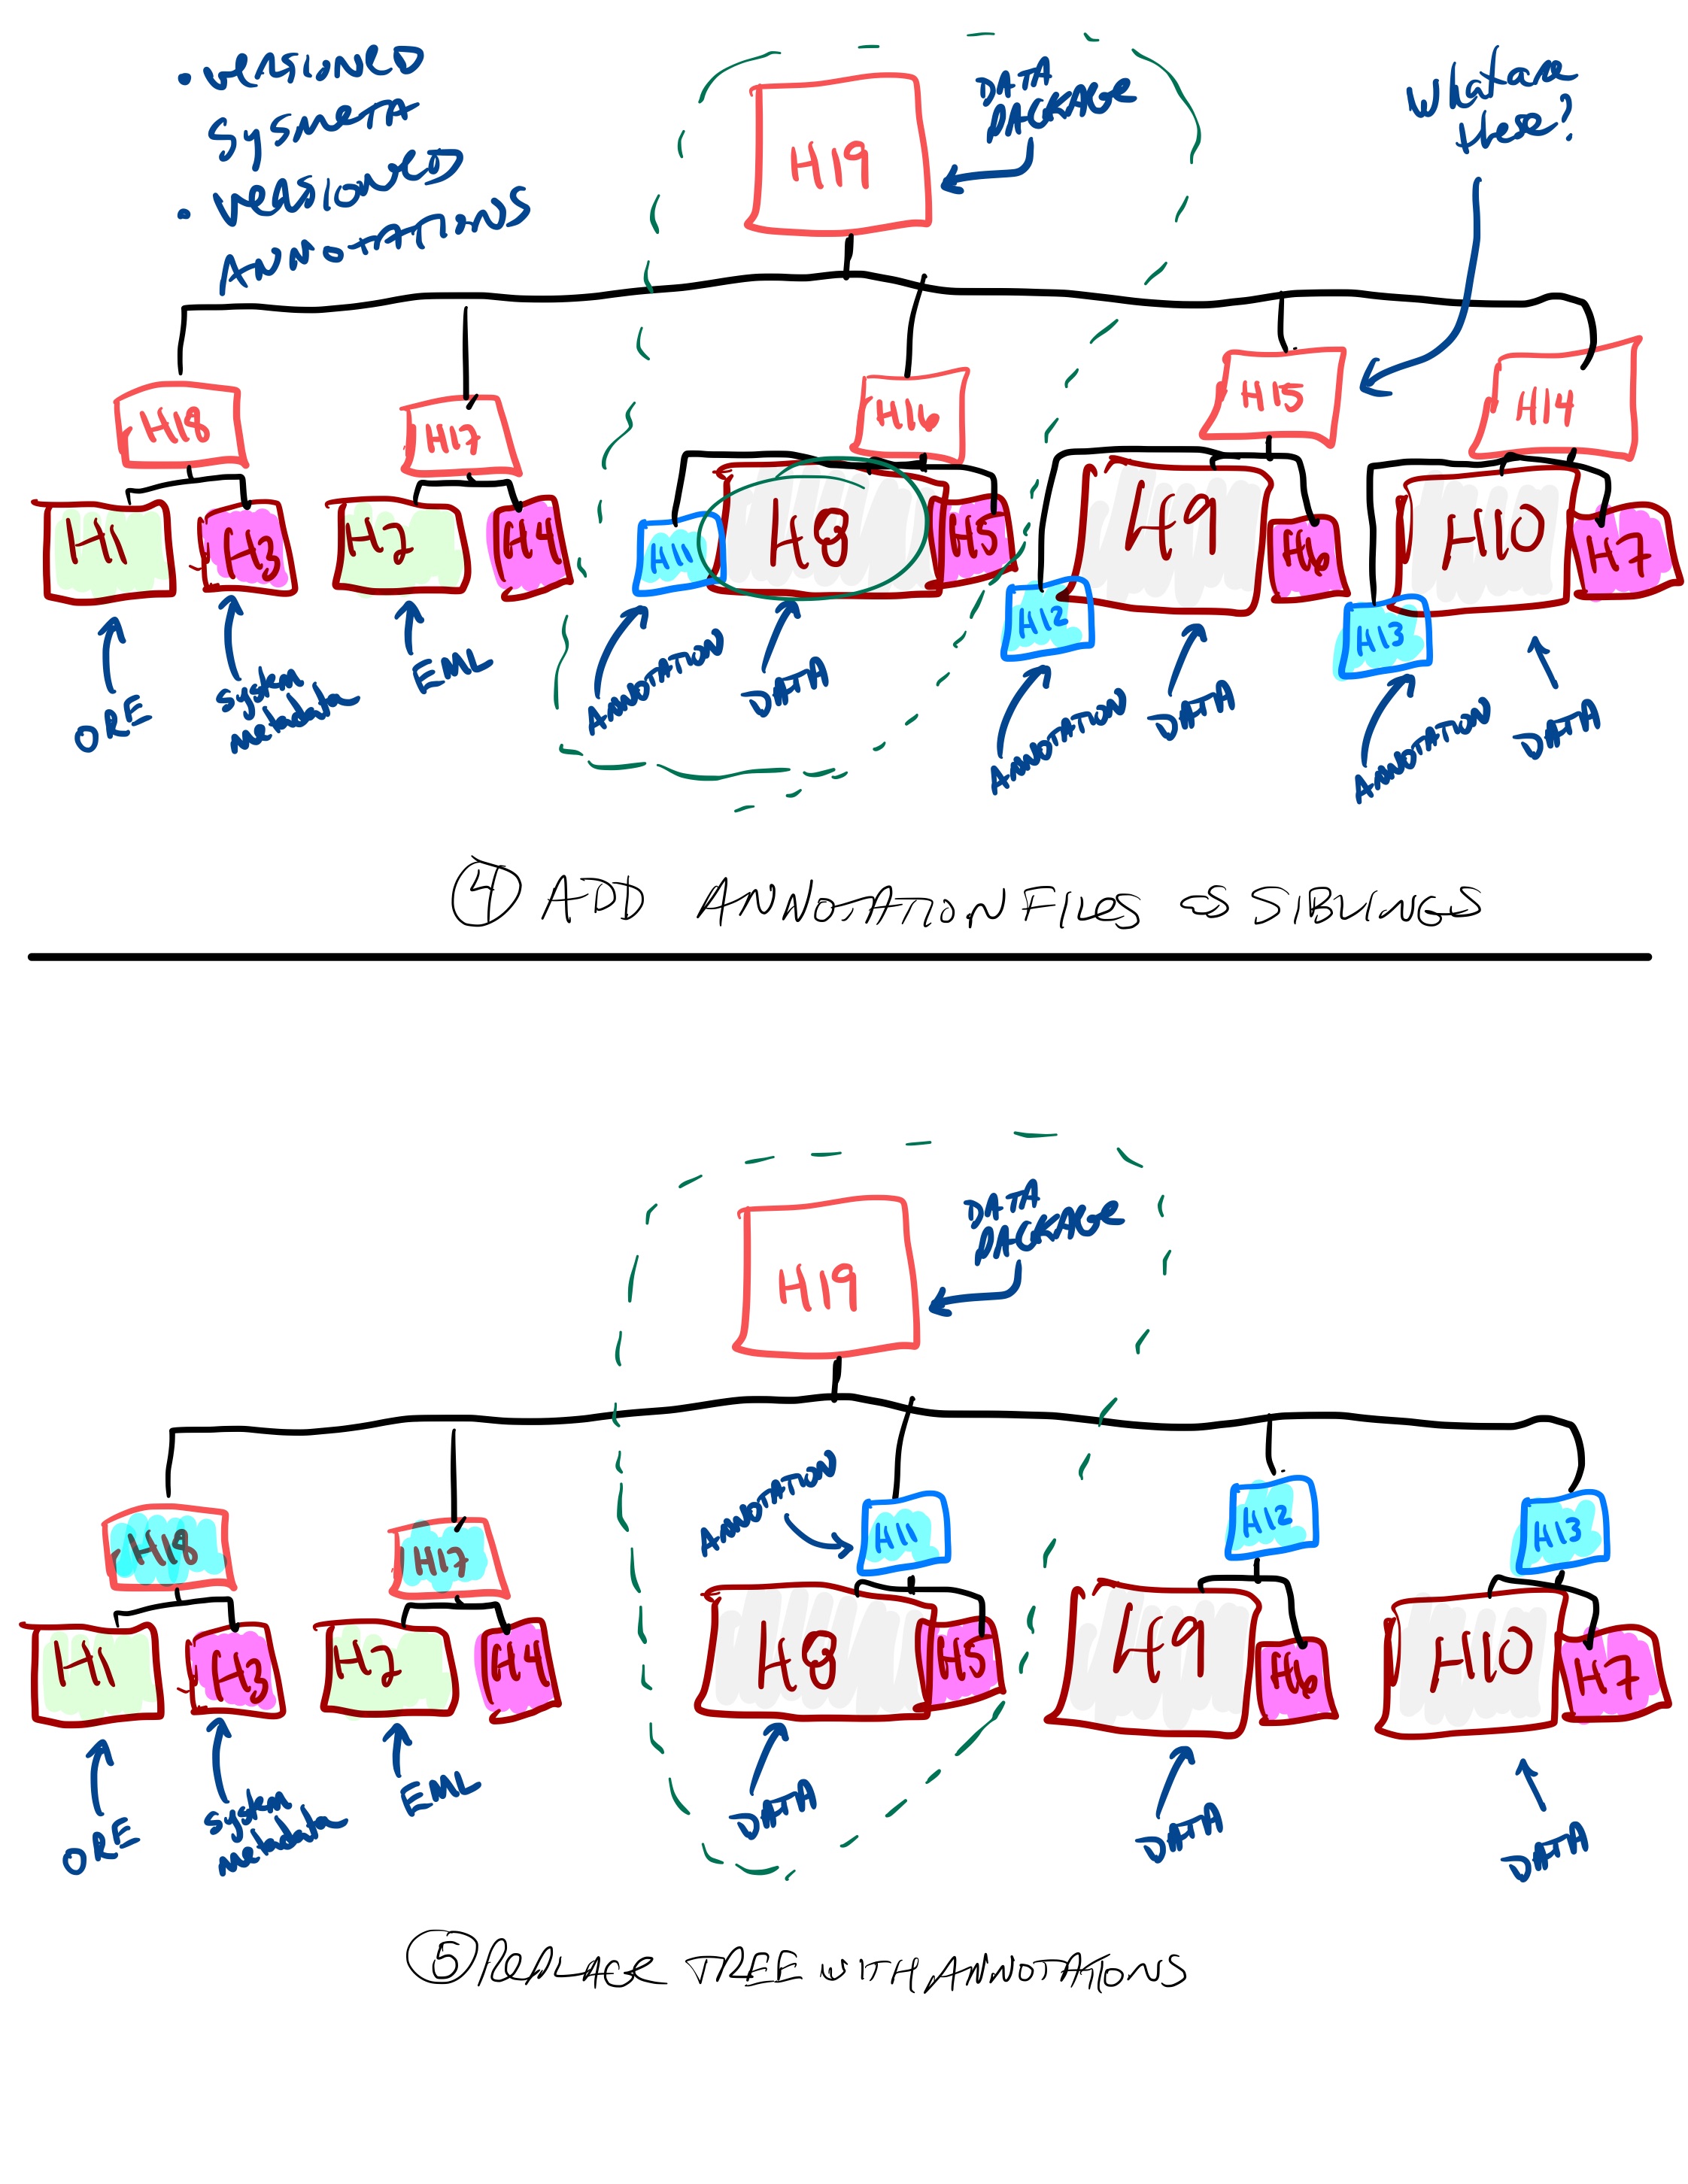 • VERSIONED
SYSMETA
• VERSIONED
ANNOTATIONS
DATA
PACKAGE
What are
these?
H19
H18
H17
H16
H15
H14
H1
H3
H2
H4
H11
H8
H5
H9
H6
H10
H7
H12
H13
ORE
System
metadata
EML
ANNOTATION
DATA
ANNOTATION
DATA
ANNOTATION
DATA
④ ADD ANNOTATION FILES as SIBLINGS
DATA
PACKAGE
H19
ANNOTATION
H18
H17
H11
H12
H13
H1
H3
H2
H4
H8
H5
H9
H6
H10
H7
ORE
System
metadata
EML
DATA
DATA
DATA
⑤ REPLACE TREE WITH ANNOTATIONS